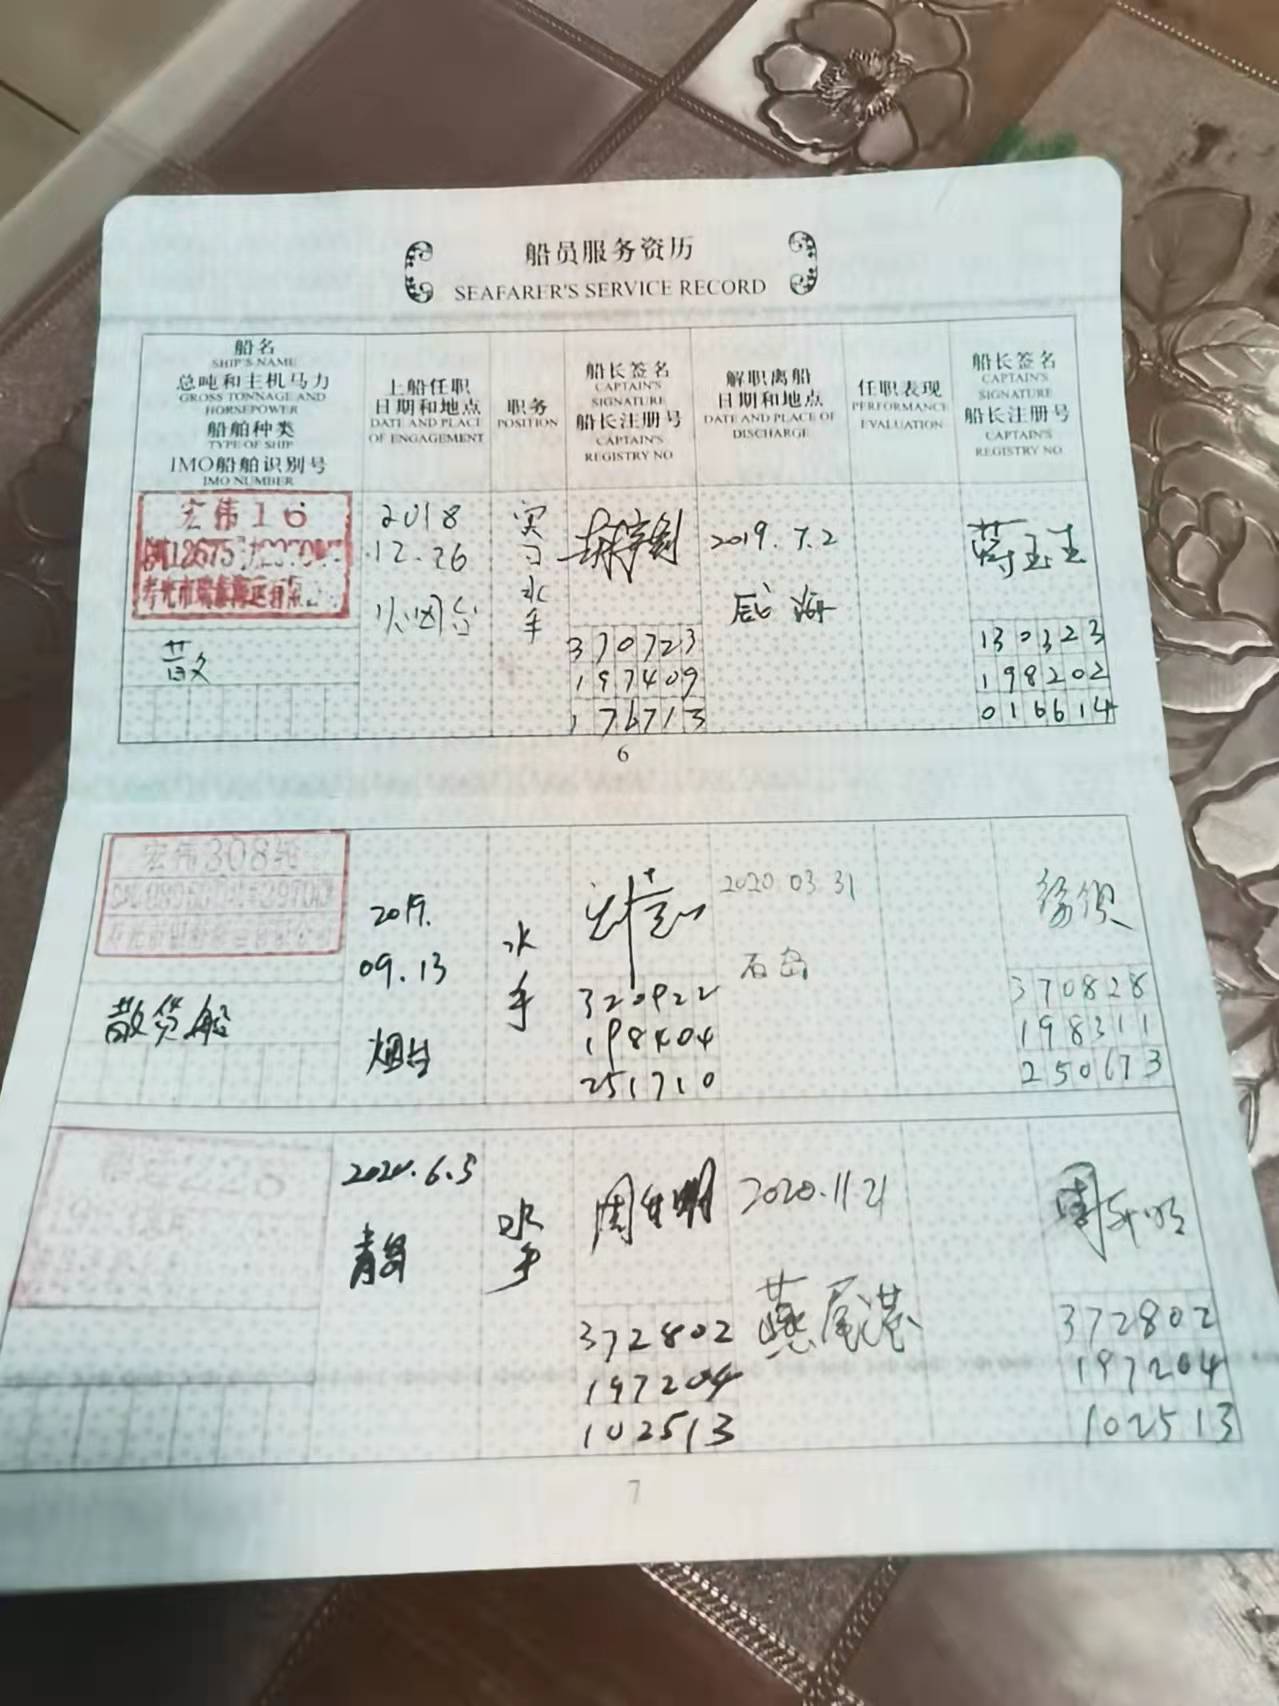 船员服务资历
SEAFARER'S SERVICE RECORD
船名
SHIP'S NAME
总吨和主机马力
GROSS TONNAGE AND
HORSEPOWER
船舶种类
TYPE OF SHIP
IMO船舶识别号
IMO NUMBER
上船任职
日期和地点
DATE AND PLACE
OF ENGAGEMENT
职务
POSITION
船长签名
CAPTAIN'S
SIGNATURE
船长注册号
CAPTAIN'S
REGISTRY NO
解职离船
日期和地点
DATE AND PLACE OF
DISCHARGE
任职表现
PERFORMANCE
EVALUATION
船长签名
CAPTAIN'S
SIGNATURE
船长注册号
CAPTAIN'S
REGISTRY NO
宏伟16
散
2018
.12.26
烟台
实习水手
370723
197409
176713
2019.7.2
威海
蒋玉圭
130323
198202
016614
6
宏伟308轮
散货船
2019.
09.13
烟台
水手
320922
198404
251710
2020.03.31
石岛
370828
198311
250673
2020.6.5
青岛
水手
周
372802
197204
102513
2020.11.21
燕尾港
周
372802
197204
102513
7